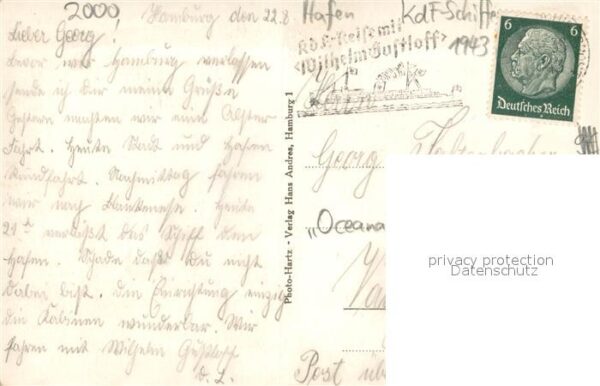 2000 Hamburg den 22.8
Lieber Georg!
Bevor wir Hamburg verlassen
sende ich dir meine Grüße
Gestern machten wir eine Alster
Fahrt. Heute Stadt und Hafen
Rundfahrt. Nachmittag fahren
wir nach Blankenese. Heute
21 verläßt das Schiff den
Hafen. Schade daß Du nicht
dabei bist. Die Einrichtung einzig
die Kabinen wunderbar. Wir
fahren mit Wilhelm Gustloff
Photo-Hartz - Verlag Hans Andres, Hamburg 1
Hafen KdF-Schiffe
1943
KdF.-Reise mit
"Wilhelm Gustloff"
6 6
Deutsches Reich
Georg
"Oceana
Post
privacy protection
Datenschutz